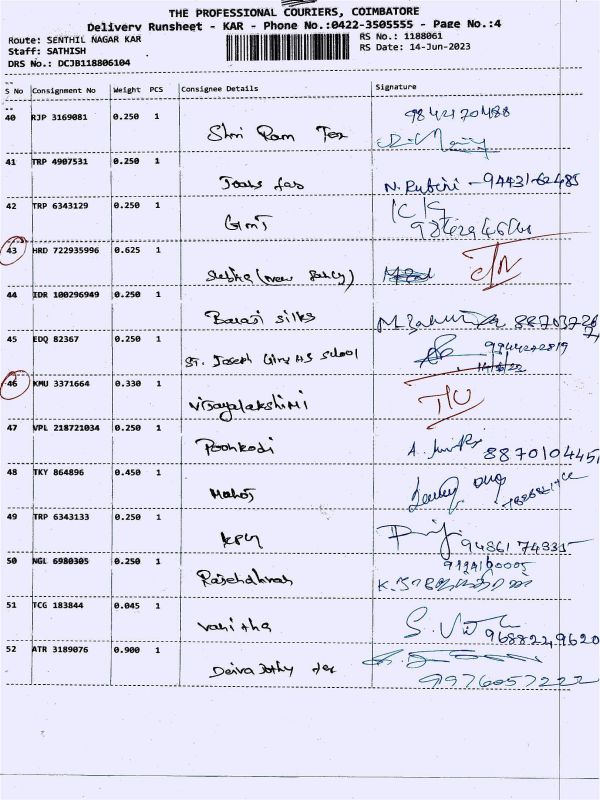 THE PROFESSIONAL COURIERS, COIMBATORE
Delivery Runsheet - KAR - Phone No.:0422-3505555 - Page No.:4
Route: SENTHIL NAGAR KAR RS No.: 1188061
Staff: SATHISH RS Date: 14-Jun-2023
DRS No.: DCJB118806104
S No Consignment No Weight PCS Consignee Details Signature
40 RJP 3169081 0.250 1 Shri Ram Tex 9842170488
41 TRP 4907531 0.250 1 N. Rubini - 94431-62485
42 TRP 6343129 0.250 1 GMT
43 HRD 722935996 0.625 1
44 IDR 100296949 0.250 1 Balaji silks
45 EDQ 82367 0.250 1 ST. Joseph Girls HS School 9944242819
46 KMU 3371664 0.330 1 Vijayalakshmi
47 VPL 218721034 0.250 1 Poonkodi 8870104451
48 TKY 864896 0.450 1 Manoj
49 TRP 6343133 0.250 1 KPN 9486174335
50 NGL 6980305 0.250 1
51 TCG 183844 0.045 1 Vanitha 9688229620
52 ATR 3189076 0.900 1 Deiva Jothy tex 9976057222